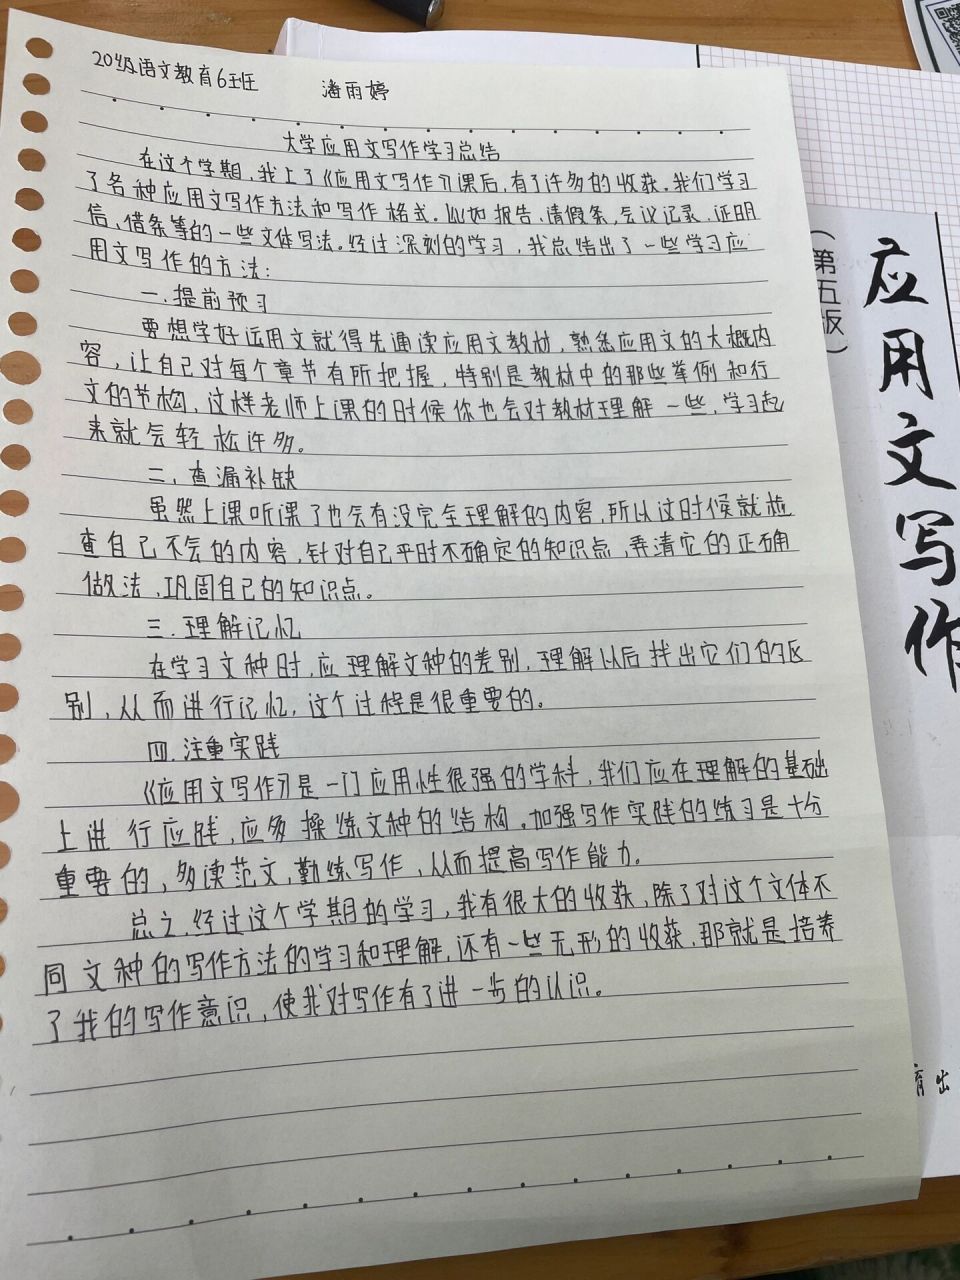 20级语文教育6班 潘雨婷
大学应用文写作学习总结
在这个学期,我上了《应用文写作》课后,有了许多的收获。我们学习
了各种应用文写作方法和写作格式。比如报告、请假条、会议记录、证明
信、借条等的一些文体写法。经过深刻的学习,我总结出了一些学习应
用文写作的方法:
一.提前预习
要想学好运用文就得先通读应用文教材,熟悉应用文的大概内
容,让自己对每个章节有所把握,特别是教材中的那些举例和行
文的节构,这样老师上课的时候你也会对教材理解一些,学习起
来就会轻松许多。
二.查漏补缺
虽然上课听课了也会有没完全理解的内容,所以这时候就检
查自己不会的内容,针对自己平时不确定的知识点,弄清它的正确
做法,巩固自己的知识点。
三.理解记忆
在学习文种时,应理解文种的差别,理解以后找出它们的区
别,从而进行记忆,这个过程是很重要的。
四.注重实践
《应用文写作》是一门应用性很强的学科,我们应在理解的基础
上进行应践,应多操练文种的结构。加强写作实践的练习是十分
重要的,多读范文,勤练写作,从而提高写作能力。
总之,经过这个学期的学习,我有很大的收获,除了对这个文体不
同文种的写作方法的学习和理解,还有一些无形的收获,那就是培养
了我的写作意识,使我对写作有了进一步的认识。
应用文写作
(第五版)
育出